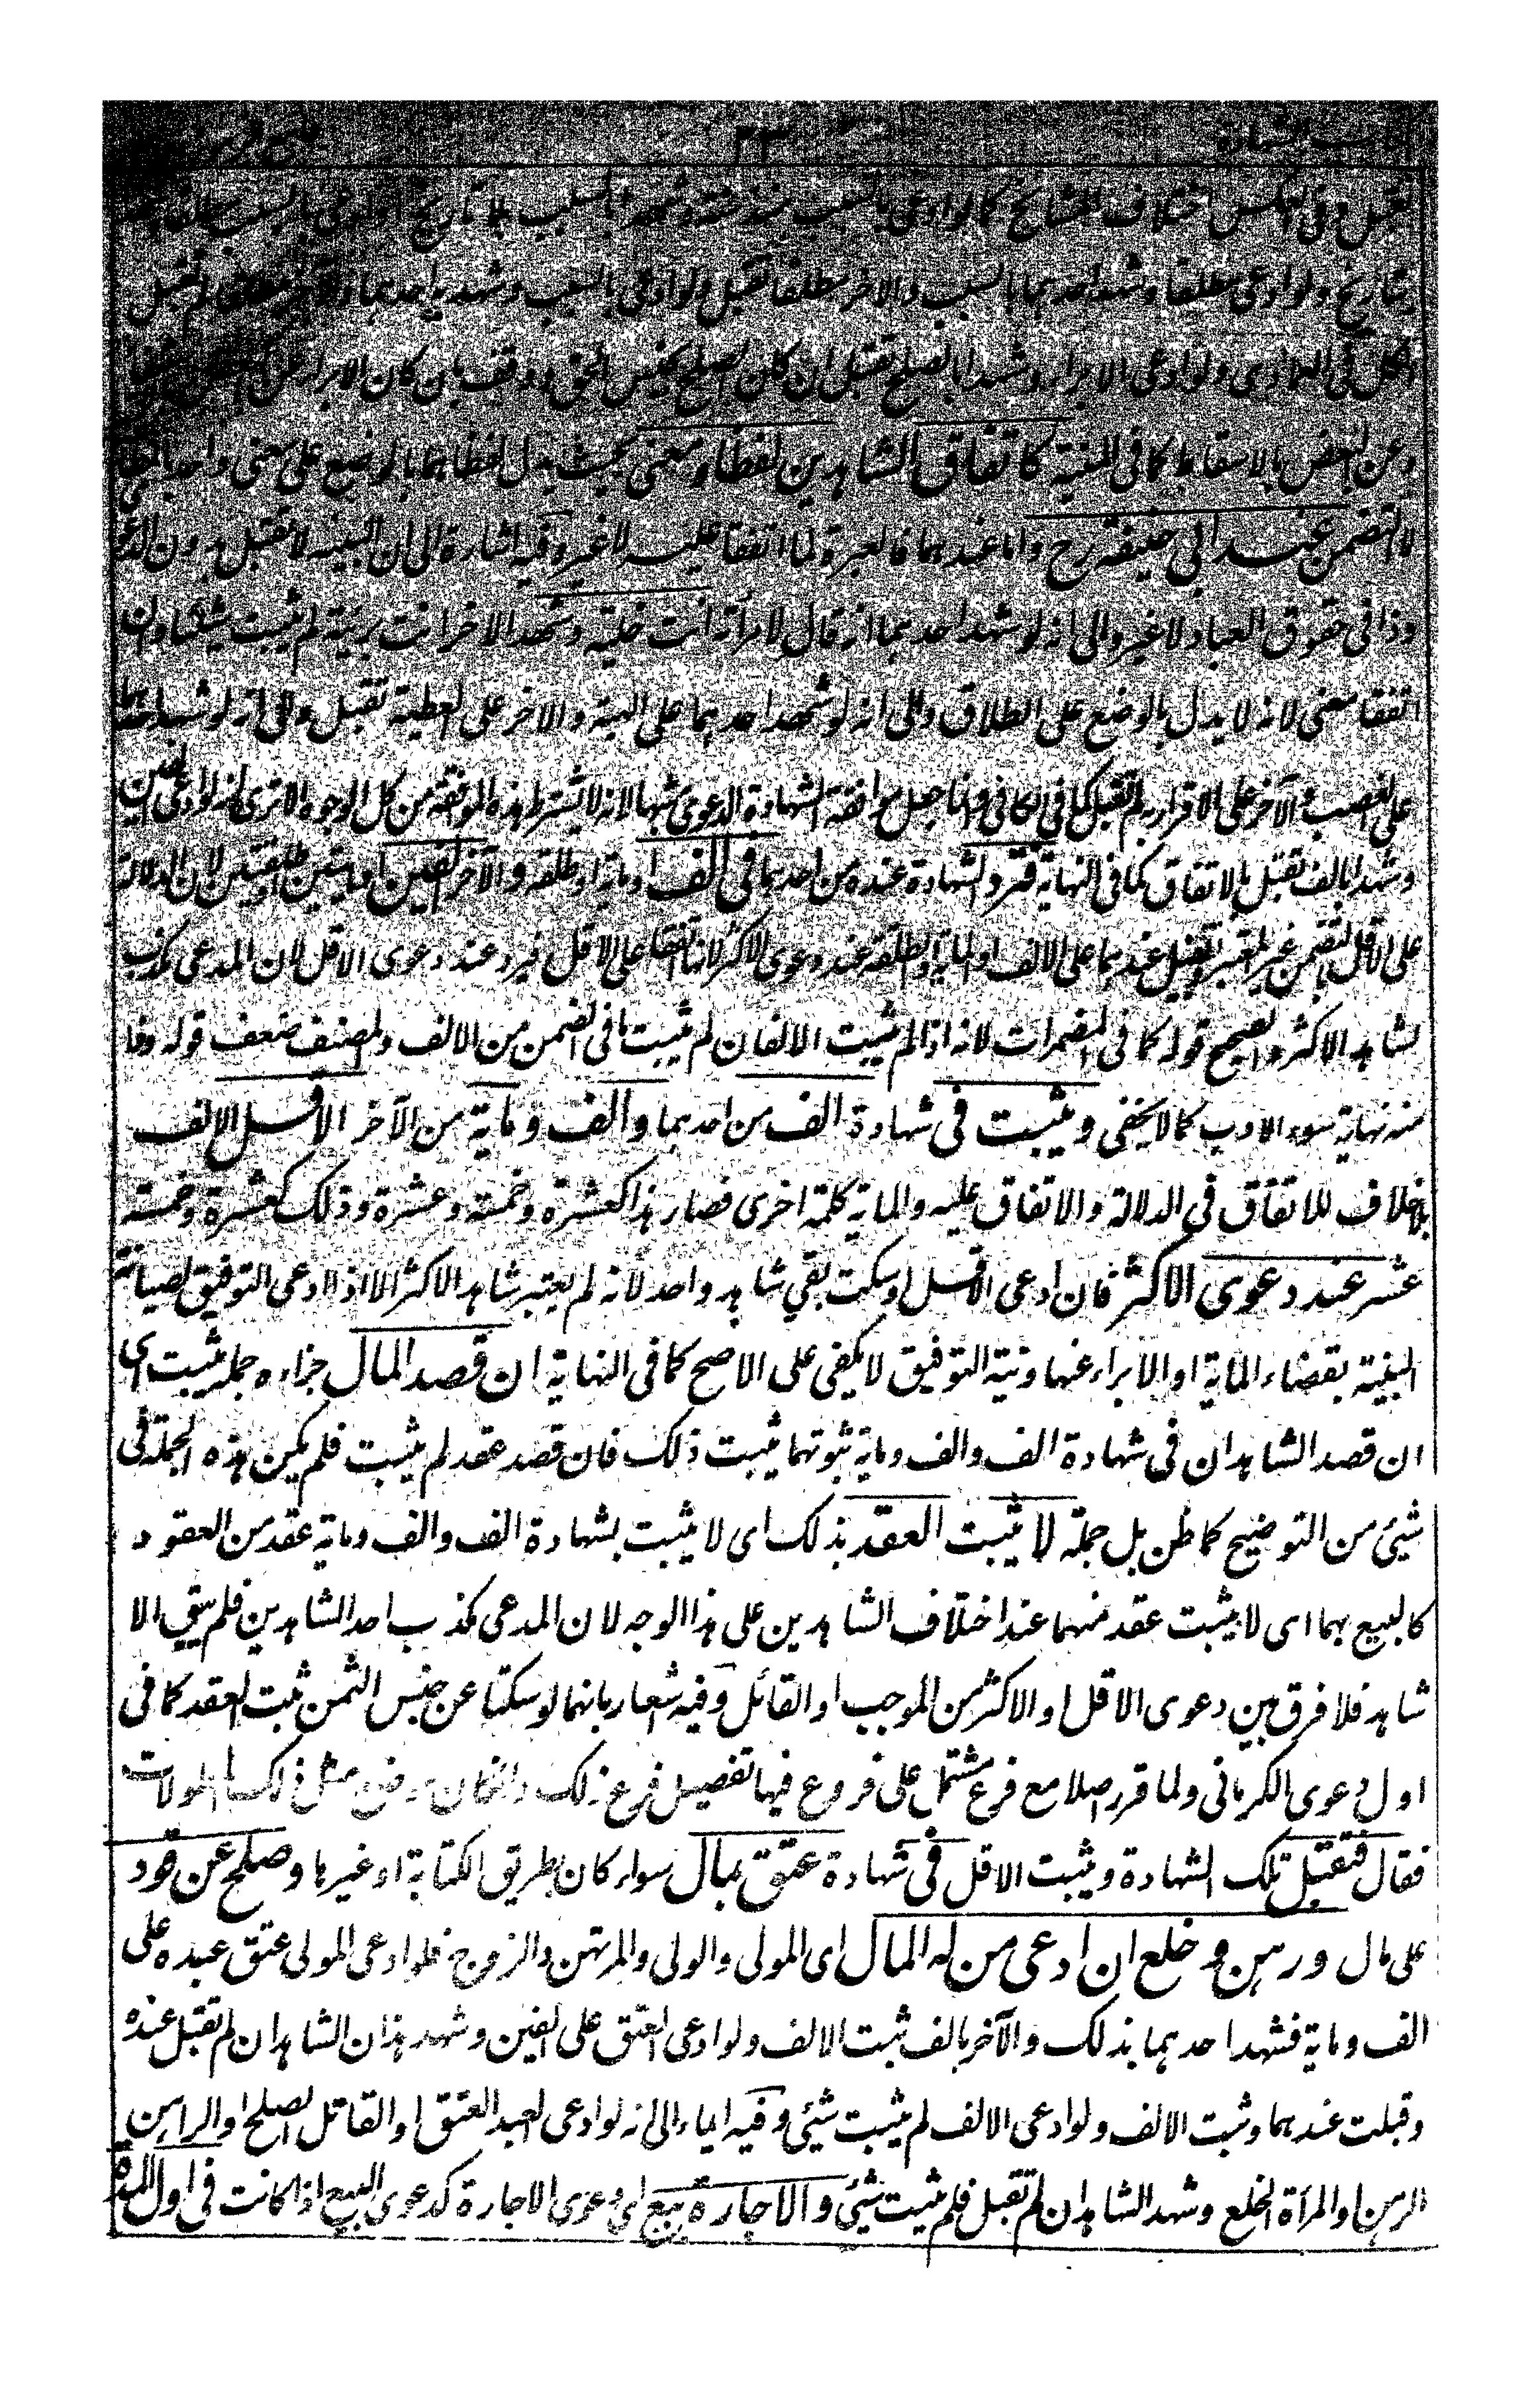 تقبل وفى العكس اختلاف المشائخ كما لو ادعى بالسبب وشهدا بالسبب بلا تاريخ او ادعى بالسبب مطلقا
بتاريخ ولو ادعى مطلقا وشهد احدهما بالسبب والآخر مطلقا تقبل ولو ادعى بالسبب وشهد به احدهما والآخر مطلقا لم تقبل
الكل فى العمادى ولو ادعى الابراء وشهدا بالصلح تقبل ان كان الصلح بجنس الحق ووفق بان كان الابراء عن
وعن البعض بالاسقاط كما فى المنية كاتفاق الشاهدين لفظا ومعنى بحيث يدل لفظاهما بالوضع على معنى واحد
لا التضمن عند ابى حنيفة رح واما عندهما فالعبرة لما اتفقا عليه لا غير وفيه اشارة الى ان البينة لا تقبل بدون الدعوى
وذا فى حقوق العباد لا غير والى انه لو شهد احدهما انه قال لامرأته انت خلية وشهد الآخر انت برية لم يثبت شئ وان
اتفقا معنى لانه لا يدل بالوضع على الطلاق والى انه لو شهد احدهما على الهبة والآخر على العطية تقبل والى انه لو شهد احدهما
على الغصب والآخر على الاقرار به لم تقبل كما فى الكافى وانما جعل موافقة الشهادة الدعوى شبها لانه لا يشترط هذه الموافقة من كل الوجوه الا ترى انه لو ادعى الفين
وشهدا بالف تقبل بالاتفاق كما فى النهاية فترد الشهادة عنده من احدهما فى الف او مائة او طلقة والآخر الفين او مائتين او طلقتين لان الدلالة
على الاقل بالتضمن غير معتبر وتقبل عندهما على الالف او المائة او الطلقة عند دعوى الاكثر لانهما اتفقا على الاقل فيرد عند دعوى الاقل لان المدعى مكذب
لشاهد الاكثر والصحيح قوله كما فى المضمرات لانه اذا لم يثبت الالفان لم يثبت ما فى الضمن من الالف والمصنف ضعف قوله وذا
منه نهاية سوء الادب كما لا يخفى ويثبت فى شهادة الف من احدهما والف ومایة من الآخر الاقل الالف
بلا خلاف للاتفاق فى الدلالة والاتفاق عليه والماية كلمة اخرى فصار هذا كعشرة وخمسة وعشرة وذلك كعشرة وخمسة
عشر عند دعوى الاكثر فان ادعى الاقل او سكت بقي شاهد واحد لانه لم يعتبر شاهد الاكثر الا اذا ادعى التوفيق لصيانة
البينة بقضاء الماية او الابراء عنها ونية التوفيق لا يكفى على الاصح كما فى النهاية ان قصد المال جزاءه جملة يثبت اى
ان قصد الشاهدان فى شهادة الف والف وماية ثبوتهما يثبت ذلك فان قصد عقد لم يثبت فلم يكن هذه الجملة فى
شئ من التوضيح كما ظن بل جملة لا يثبت العقد بذلك اى لا يثبت بشهادة الف والف وماية عقد من العقود
كالبيع بهما اى لا يثبت عقد منهما عند اختلاف الشاهدين على هذا الوجه لان المدعى مكذب احد الشاهدين فلم يبق الا
شاهد فلا فرق بين دعوى الاقل او الاكثر من الموجب او القائل وفيه شعار بانهما لو سكتا عن جنس الثمن ثبت العقد كما فى
اول دعوى الكرمانى ولما قرر اصلا مع فرع مشتمل على فروع فيها تفصيل فرع ذلك
فقال فتقبل تلك الشهادة ويثبت الاقل فى شهادة عتق بمال سواء كان بطريق الكتابة او غيرها وصلح عن قود
على مال ورهن وخلع ان ادعى من له المال اى المولى والولى والمرتهن والزوج فلو ادعى المولى عتق عبده على
الف وماية فشهد احدهما بذلك والآخر بالف ثبت الالف ولو ادعى العتق على الفين وشهد هذان الشاهدان لم تقبل عنده
وقبلت عندهما وثبت الالف ولو ادعى الالف لم يثبت شئ وفيه ايماء الى انه لو ادعى العبد العتق او القاتل الصلح او الراهن
الرهن او المرأة الخلع وشهد الشاهدان لم تقبل فلم يثبت شئ والاجارة بيع اى دعوى الاجارة كدعوى البيع اذا كانت فى اول المدة